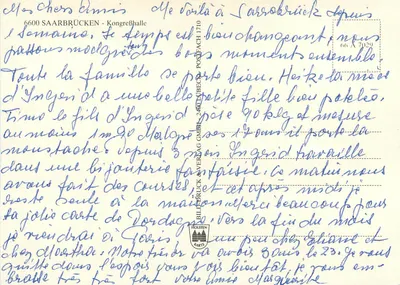 Mes chers Amis Me voilà à Sarrebrück depuis
6600 SAARBRÜCKEN - Kongreßhalle
1 Semaine. Le temps est bien changeant, nous
passons malgré tout bons moments ensemble.
66 A 7029
Toute la famille se porte bien. Heike la nièce
d'Ingrid a une belle petite fille bien potelée.
Timo le fils d'Ingrid pèse 90 kg et mesure
au moins 1m90 Malgré ses ans il porte la
moustache depuis 3 mois Ingrid travaille
dans une bijouterie fantaisie. Ce matin nous
avons fait des courses, et cet après midi je
reste seule à la maison merci beaucoup pour
ta jolie carte de Dordogne. Vers la fin du mois
je viendrai à Paris un peu chez Liliane et
chez Marthe. Notre trésor va avoir 3 ans le 23. Je vous
quitte dans l'espoir vous voir bientôt, je vous em-
brasse très très fort votre Amie Marguerite